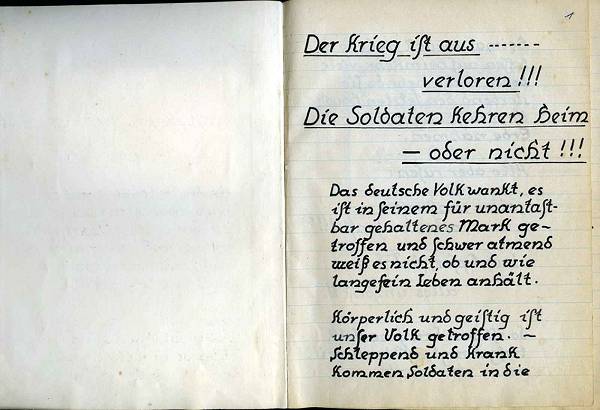 1
Der Krieg ist aus -------
verloren!!!
Die Soldaten kehren heim
— oder nicht!!!
Das deutsche Volk wankt, es
ist in seinem für unantast-
bar gehaltenes Mark ge-
troffen und schwer atmend
weiß es nicht, ob und wie
lange sein Leben anhält.
Körperlich und geistig ist
unser Volk getroffen. —
Schleppend und krank
kommen Soldaten in die